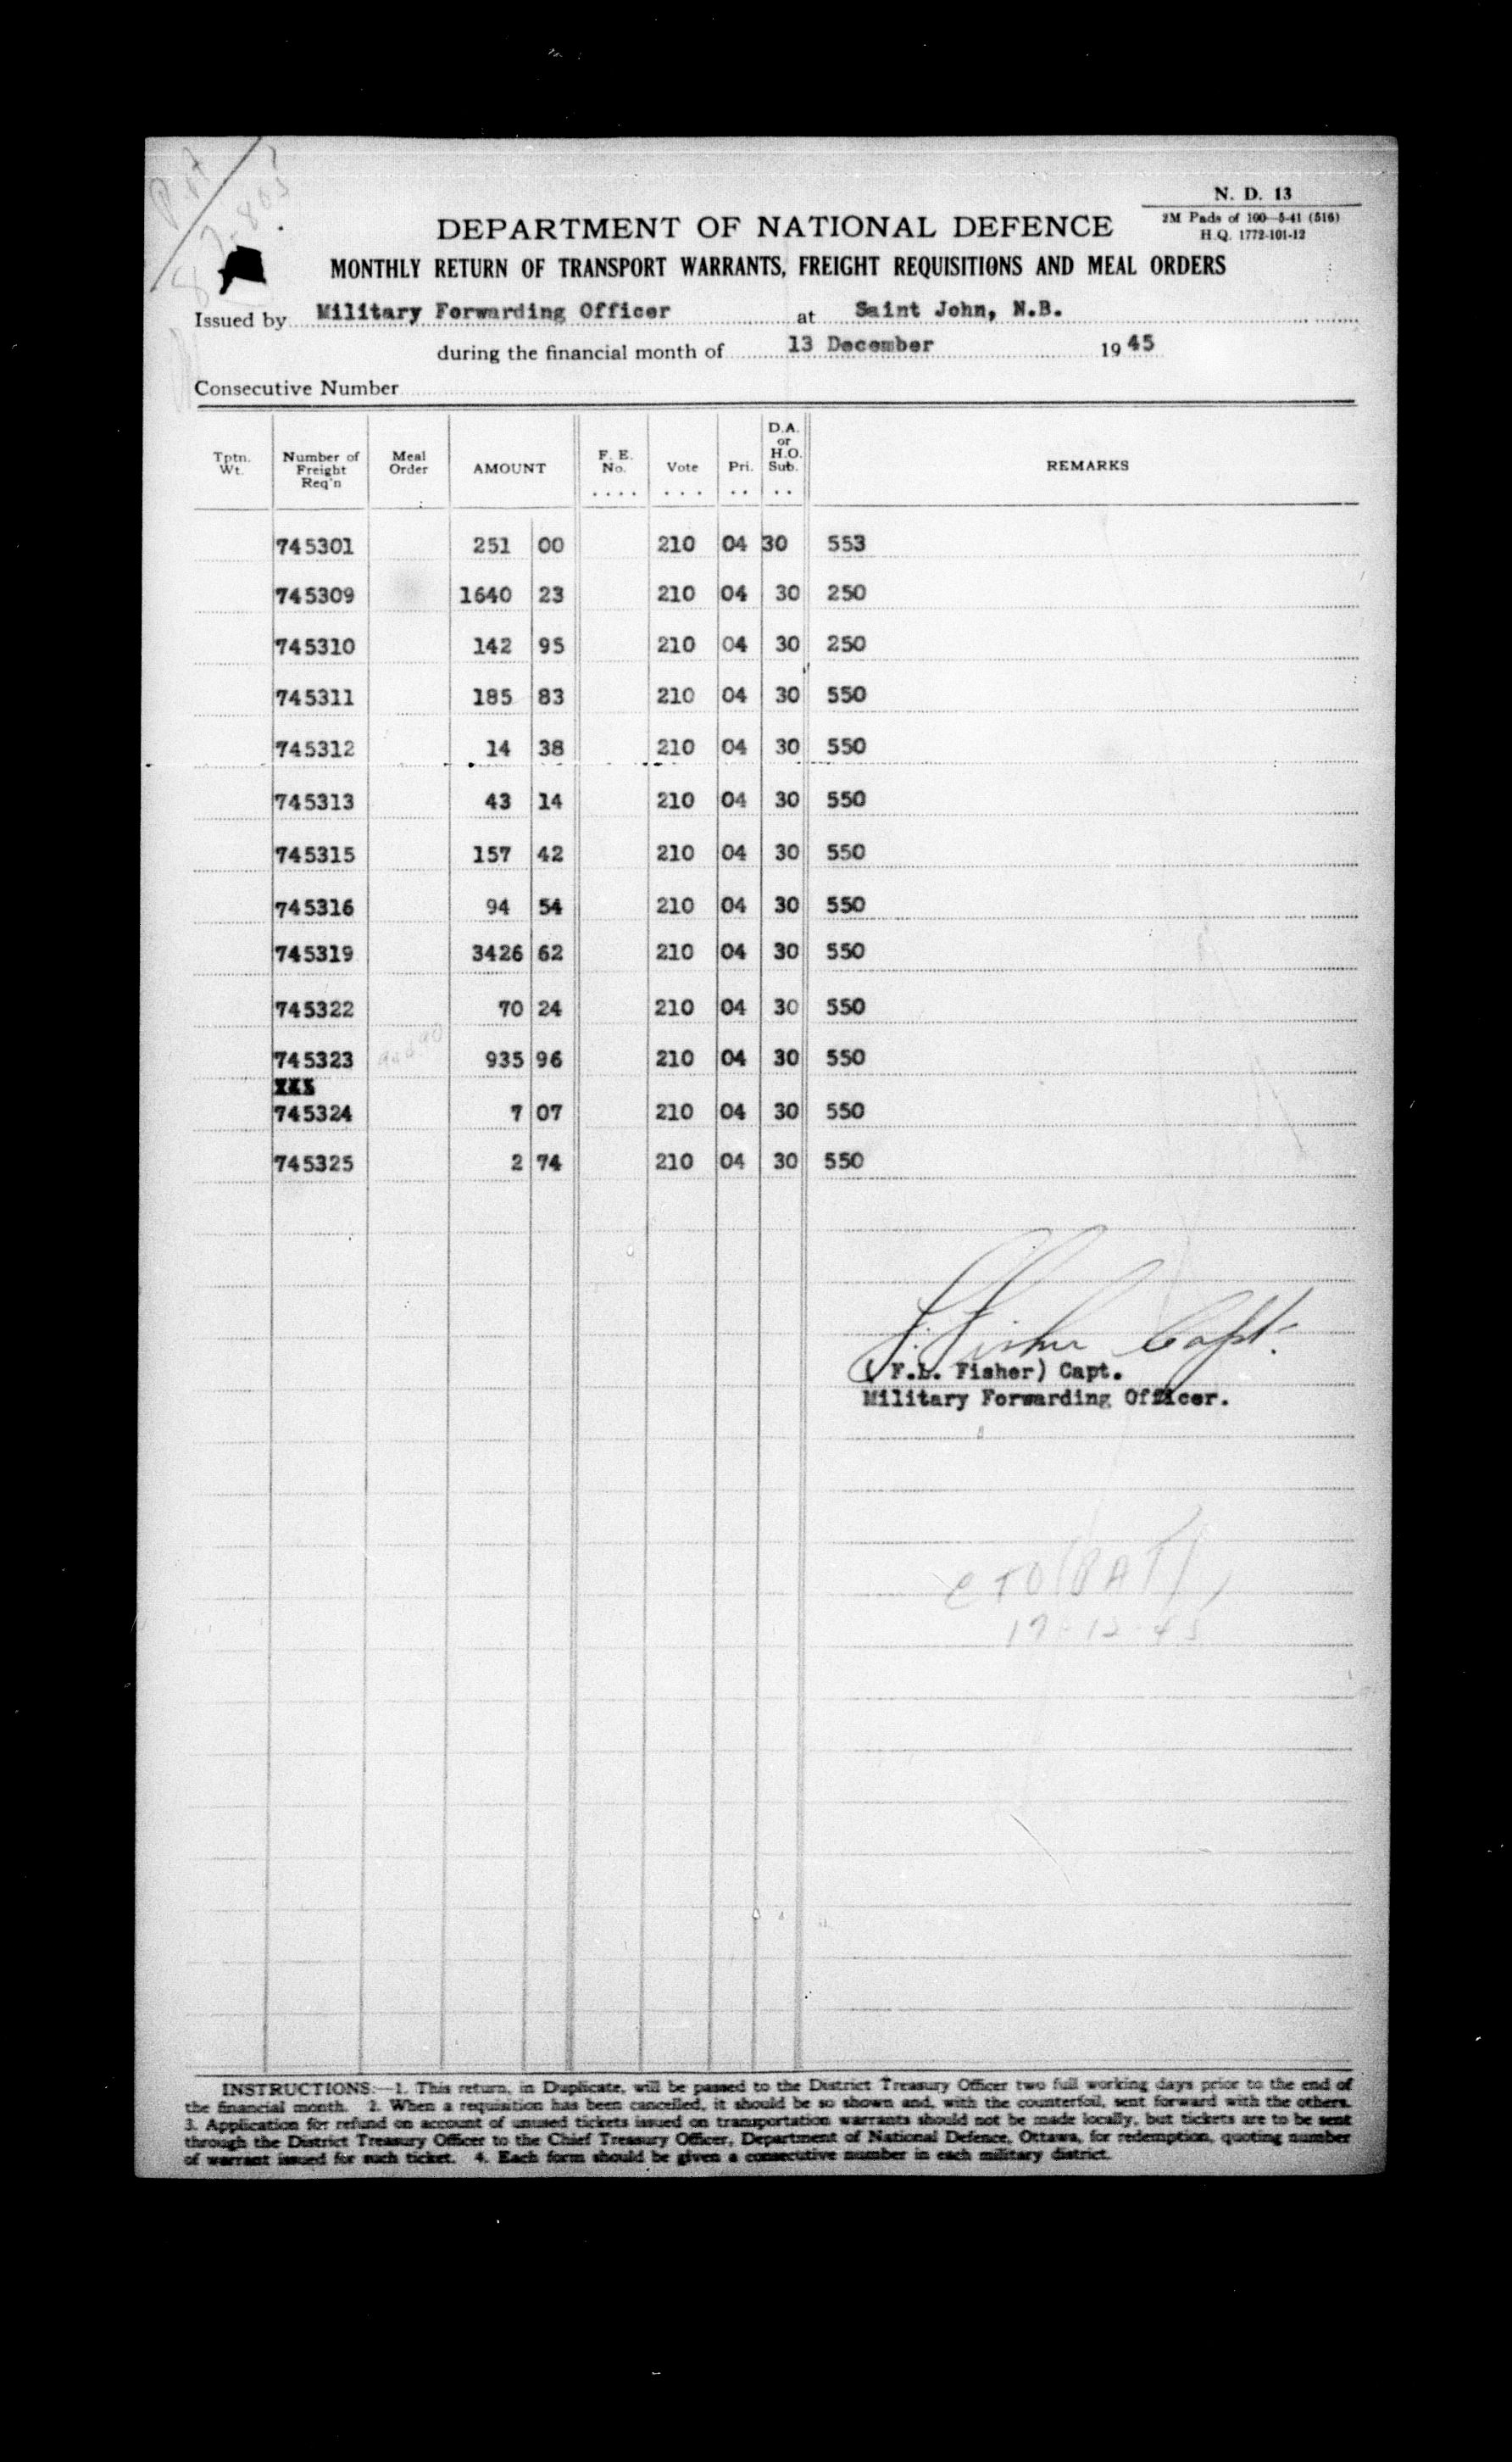 N. D. 13
2M Pads of 100—5-41 (516)
H.Q. 1772-101-12
DEPARTMENT OF NATIONAL DEFENCE
MONTHLY RETURN OF TRANSPORT WARRANTS, FREIGHT REQUISITIONS AND MEAL ORDERS
Issued by Military Forwarding Officer at Saint John, N.B.
during the financial month of 13 December 19 45
Consecutive Number
Tptn. Wt. Number of Freight Req'n Meal Order AMOUNT F. E. No. Vote Pri. D.A. or H.O. Sub. REMARKS
745301 251 00 210 04 30 553
745309 1640 23 210 04 30 250
745310 142 95 210 04 30 250
745311 185 83 210 04 30 550
745312 14 38 210 04 30 550
745313 43 14 210 04 30 550
745315 157 42 210 04 30 550
745316 94 54 210 04 30 550
745319 3426 62 210 04 30 550
745322 70 24 210 04 30 550
745323 935 96 210 04 30 550
745324 7 07 210 04 30 550
745325 2 74 210 04 30 550
F. Fisher Capt.
( F.L. Fisher) Capt.
Military Forwarding Officer.
INSTRUCTIONS:—1. This return, in Duplicate, will be passed to the District Treasury Officer two full working days prior to the end of
the financial month. 2. When a requisition has been cancelled, it should be so shown and, with the counterfoil, sent forward with the others.
3. Application for refund on account of unused tickets issued on transportation warrants should not be made locally, but tickets are to be sent
through the District Treasury Officer to the Chief Treasury Officer, Department of National Defence, Ottawa, for redemption, quoting number
of warrant issued for such ticket. 4. Each form should be given a consecutive number in each military district.